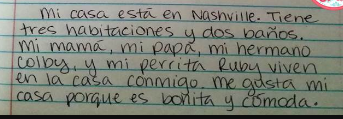 Mi casa está en Nashville. Tiene
tres habitaciones y dos baños.
Mi mamá, mi papá, mi hermano
Colby, y mi perrita Ruby viven
en la casa conmigo. Me gusta mi
casa porque es bonita y cómoda.